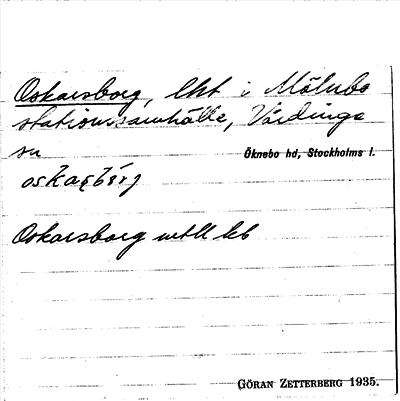 Oskarsborg, lht i Mölnbo
stationssamhälle, Vårdinga
sn Öknebo hd, Stockholms l.
Oskarsborg uttl
GÖRAN ZETTERBERG 1935.